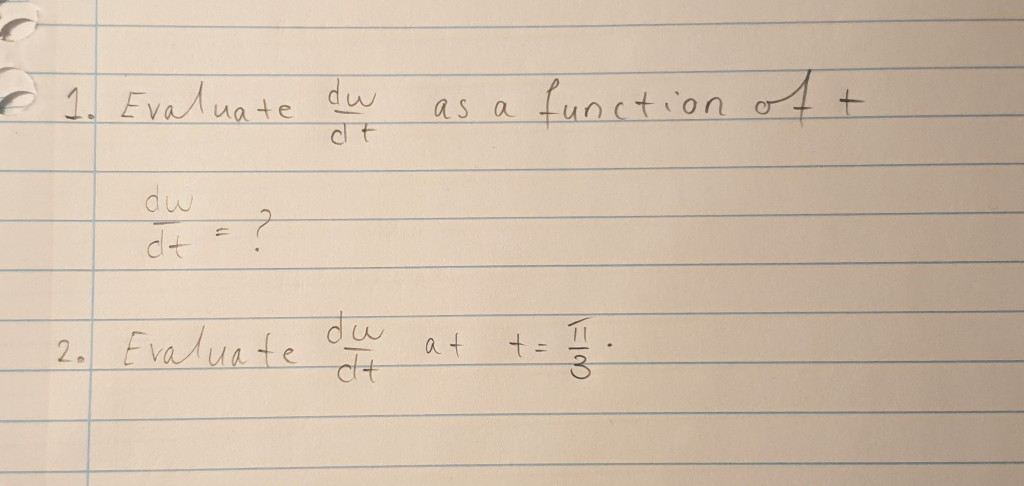 1. Evaluate dw/dt as a function of t
dw/dt = ?
2. Evaluate dw/dt at t = π/3.